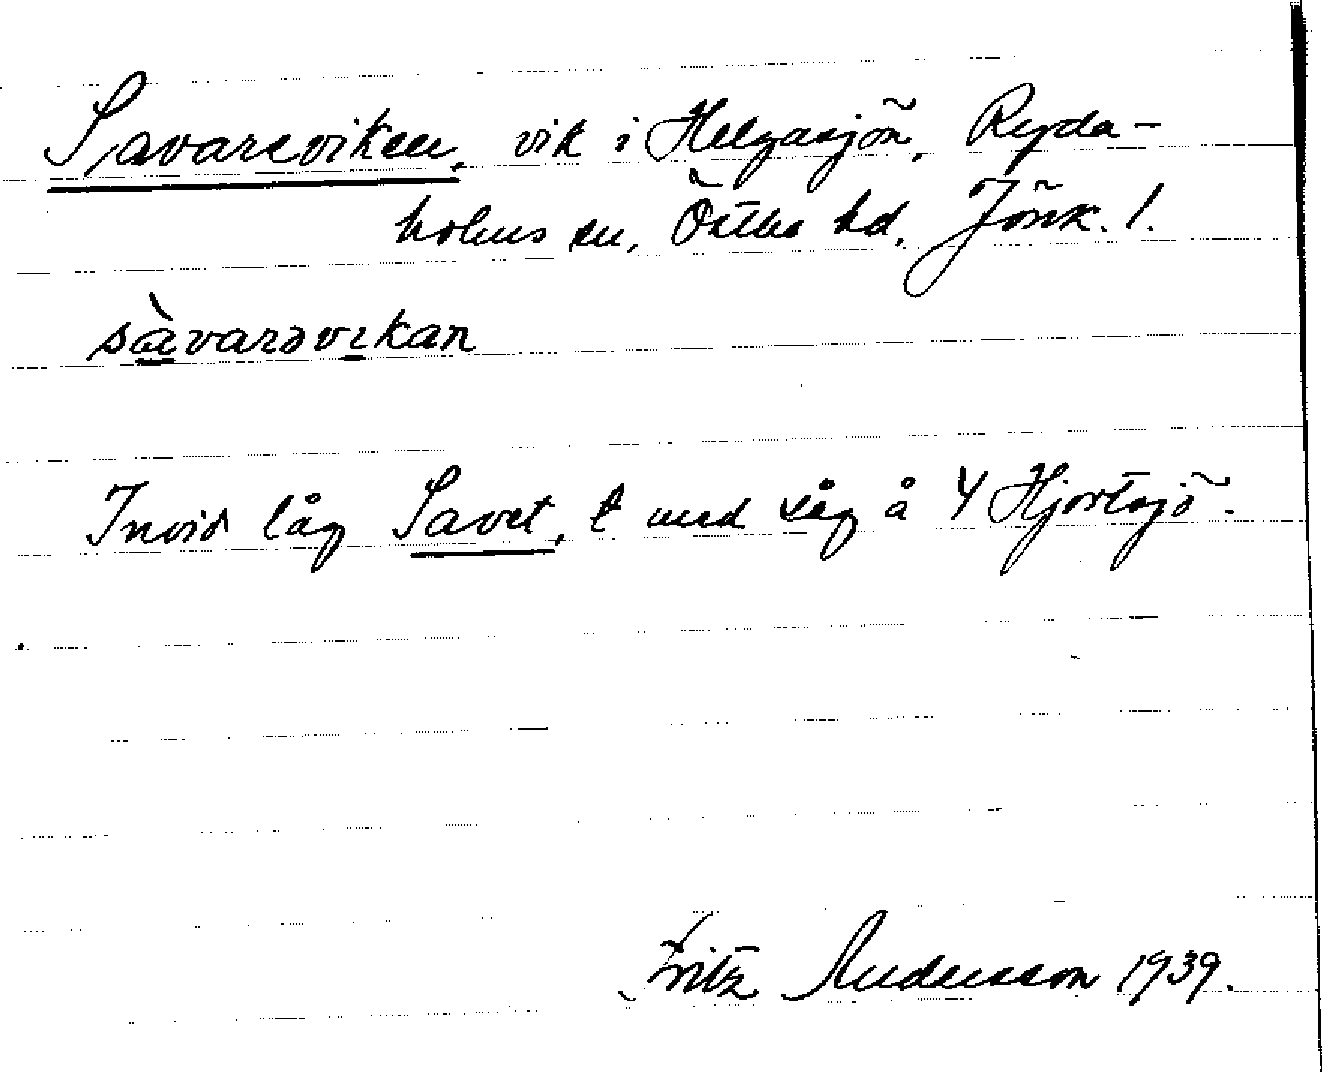 Savareviken, vik i Helgasjön, Ryda-
holms sn, Östbo hd, Jönk. l.
sàvarəvıkan
Invid låg Savet, t med såg å 4 Hjortsjö.
Fritz Andersson 1939.